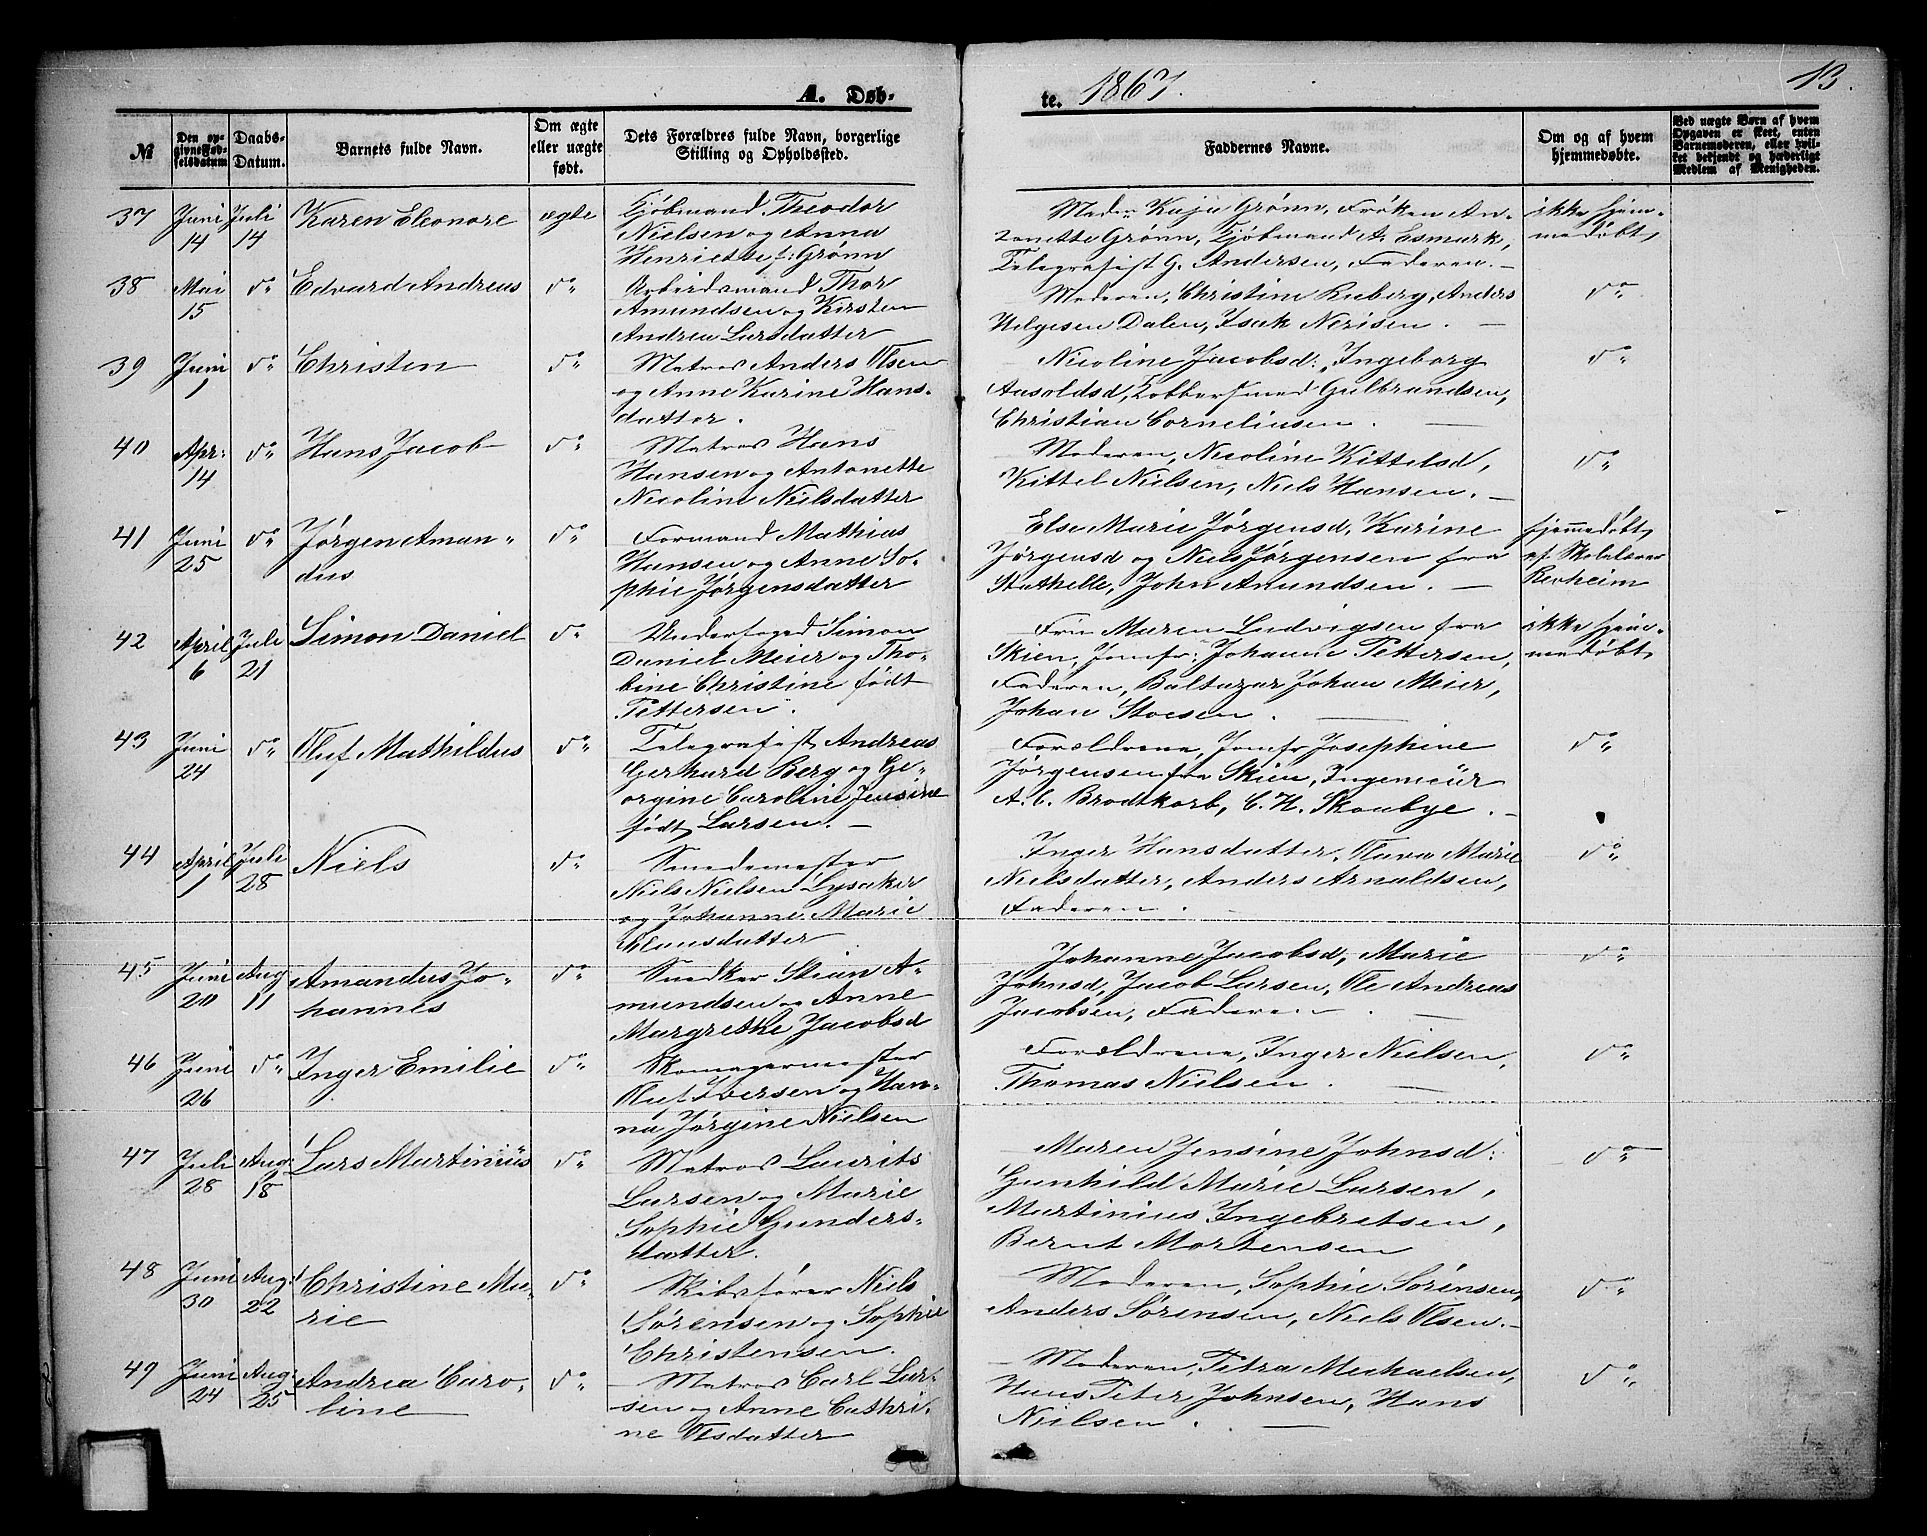 A. Døb-
te. 1867.
13.
№
Den op-
givne Fød-
selsdatum
Daabs-
Datum.
Barnets fulde Navn.
Om ægte
eller uægte
født.
Dets Forældres fulde Navn, borgerlige
Stilling og Opholdssted.
Faddernes Navne.
Om og af hvem
hjemmedøbte.
Ved uægte Børn af hvem
Opgaven er skeet, enten
Barnemoderen, eller hvil-
ket bekjendt og hæderligt
Medlem af Menigheden.
37 Juni 14 Juli 14 Karen Eleonore ægte
Kjøbmand Theodor
Nielsen og Anna
Henriette f: Grønn
Mad: Kaja Grønn, Frøken An-
tonette Grønn, Kjøbmand A. Esmark,
Telegrafist G. Andersen, Faderen. —
ikke hjem-
medøbt,
38 Mai 15 do Edvard Andreas do
Arbeidsmand Thor
Amundsen og Kirsten
Andrea Larsdatter
Moderen, Christine Ruberg, Anders
Helgesen Dalen, Isak Nerisen. —
do
39 Juni 1 do Christen do
Matros Anders Olsen
og Anne Karine Hans-
datter.
Nicoline Jacobsd:, Ingeborg
Aasoldsd, Kobbersmed Gulbrandsen,
Christian Corneliusen. —
do
40 Apr: 14 do Hans Jacob do
Matros Hans
Hansen og Antonette
Nicoline Nielsdatter
Moderen, Nicoline Kittelsd,
Kittel Nielsen, Niels Hansen. —
do
41 Juni 25 do Jørgen Aman-
dus do
Formand Mathias
Hansen og Anne So-
phie Jørgensdatter
Else Marie Jørgensd, Karine
Jørgensd og Niels Jørgensen fra
Stathelle, John Amundsen. —
hjemmedøbt,
af Skolelærer
42 April 6 Juli 21 Simon Daniel do
Underfoged Simon
Daniel Meier og Tho-
bine Christine født
Pettersen.
Fru Maren Ludvigsen fra
Skien, Jomfr: Johanne Pettersen,
Faderen, Baltazar Johan Meier,
Johan Stoesen. —
ikke hjem-
medøbt,
43 Juni 24 do Oluf Mathildus do
Telegrafist, Andreas
Gerhard Berg og Ge-
orgine Caroline Jensine
født Larsen. —
Forældrene, Jomfr Josephine
Jørgensen fra Skien, Ingeniør
A. C. Brodtkorb, C. H. Skoubye. —
do
44 April 1 Juli 28 Niels do
Smedemester
Niels Nielsen Lysaker
og Johanne Marie
Hansdatter
Inger Hansdatter, Olava Marie
Nielsdatter, Anders Arnoldsen,
Faderen. —
do
45 Juni 20 Aug 11 Amandus Jo-
hannes do
Snedker Stian A-
mundsen og Anne
Margrethe Jacobsd
Johanne Jacobsd, Marie
Johnsd, Jacob Larsen, Ole Andreas
Jacobsen, Faderen. —
do
46 Juni 26 do Inger Emilie do
Skomagermester
Oluf Iversen og Han-
na Jørgine Nielsen
Forældrene, Inger Nielsen,
Thomas Nielsen. —
do
47 Juli 28 Aug: 18 Lars Martinius do
Matros Laurits
Larsen og Marie
Sophie Gunders-
datter.
Maren Jensine Johnsd:
Gunhild Marie Larsen,
Martinius Ingebretsen,
Bernt Mortensen
do
48 Juni 30 Aug: 22 Christine Ma-
rie do
Skibsfører Niels
Sørensen og Sophie
Christensen.
Moderen, Sophie Sørensen,
Anders Sørensen, Niels Olsen. —
do
49 Juni 24 Aug: 25 Andrea Caro-
line do
Matros Carl Lar-
sen og Anne Cathri-
ne Olsdatter
Moderen, Petra Michaelsen,
Hans Peter Johnsen, Hans
Nielsen. —
do